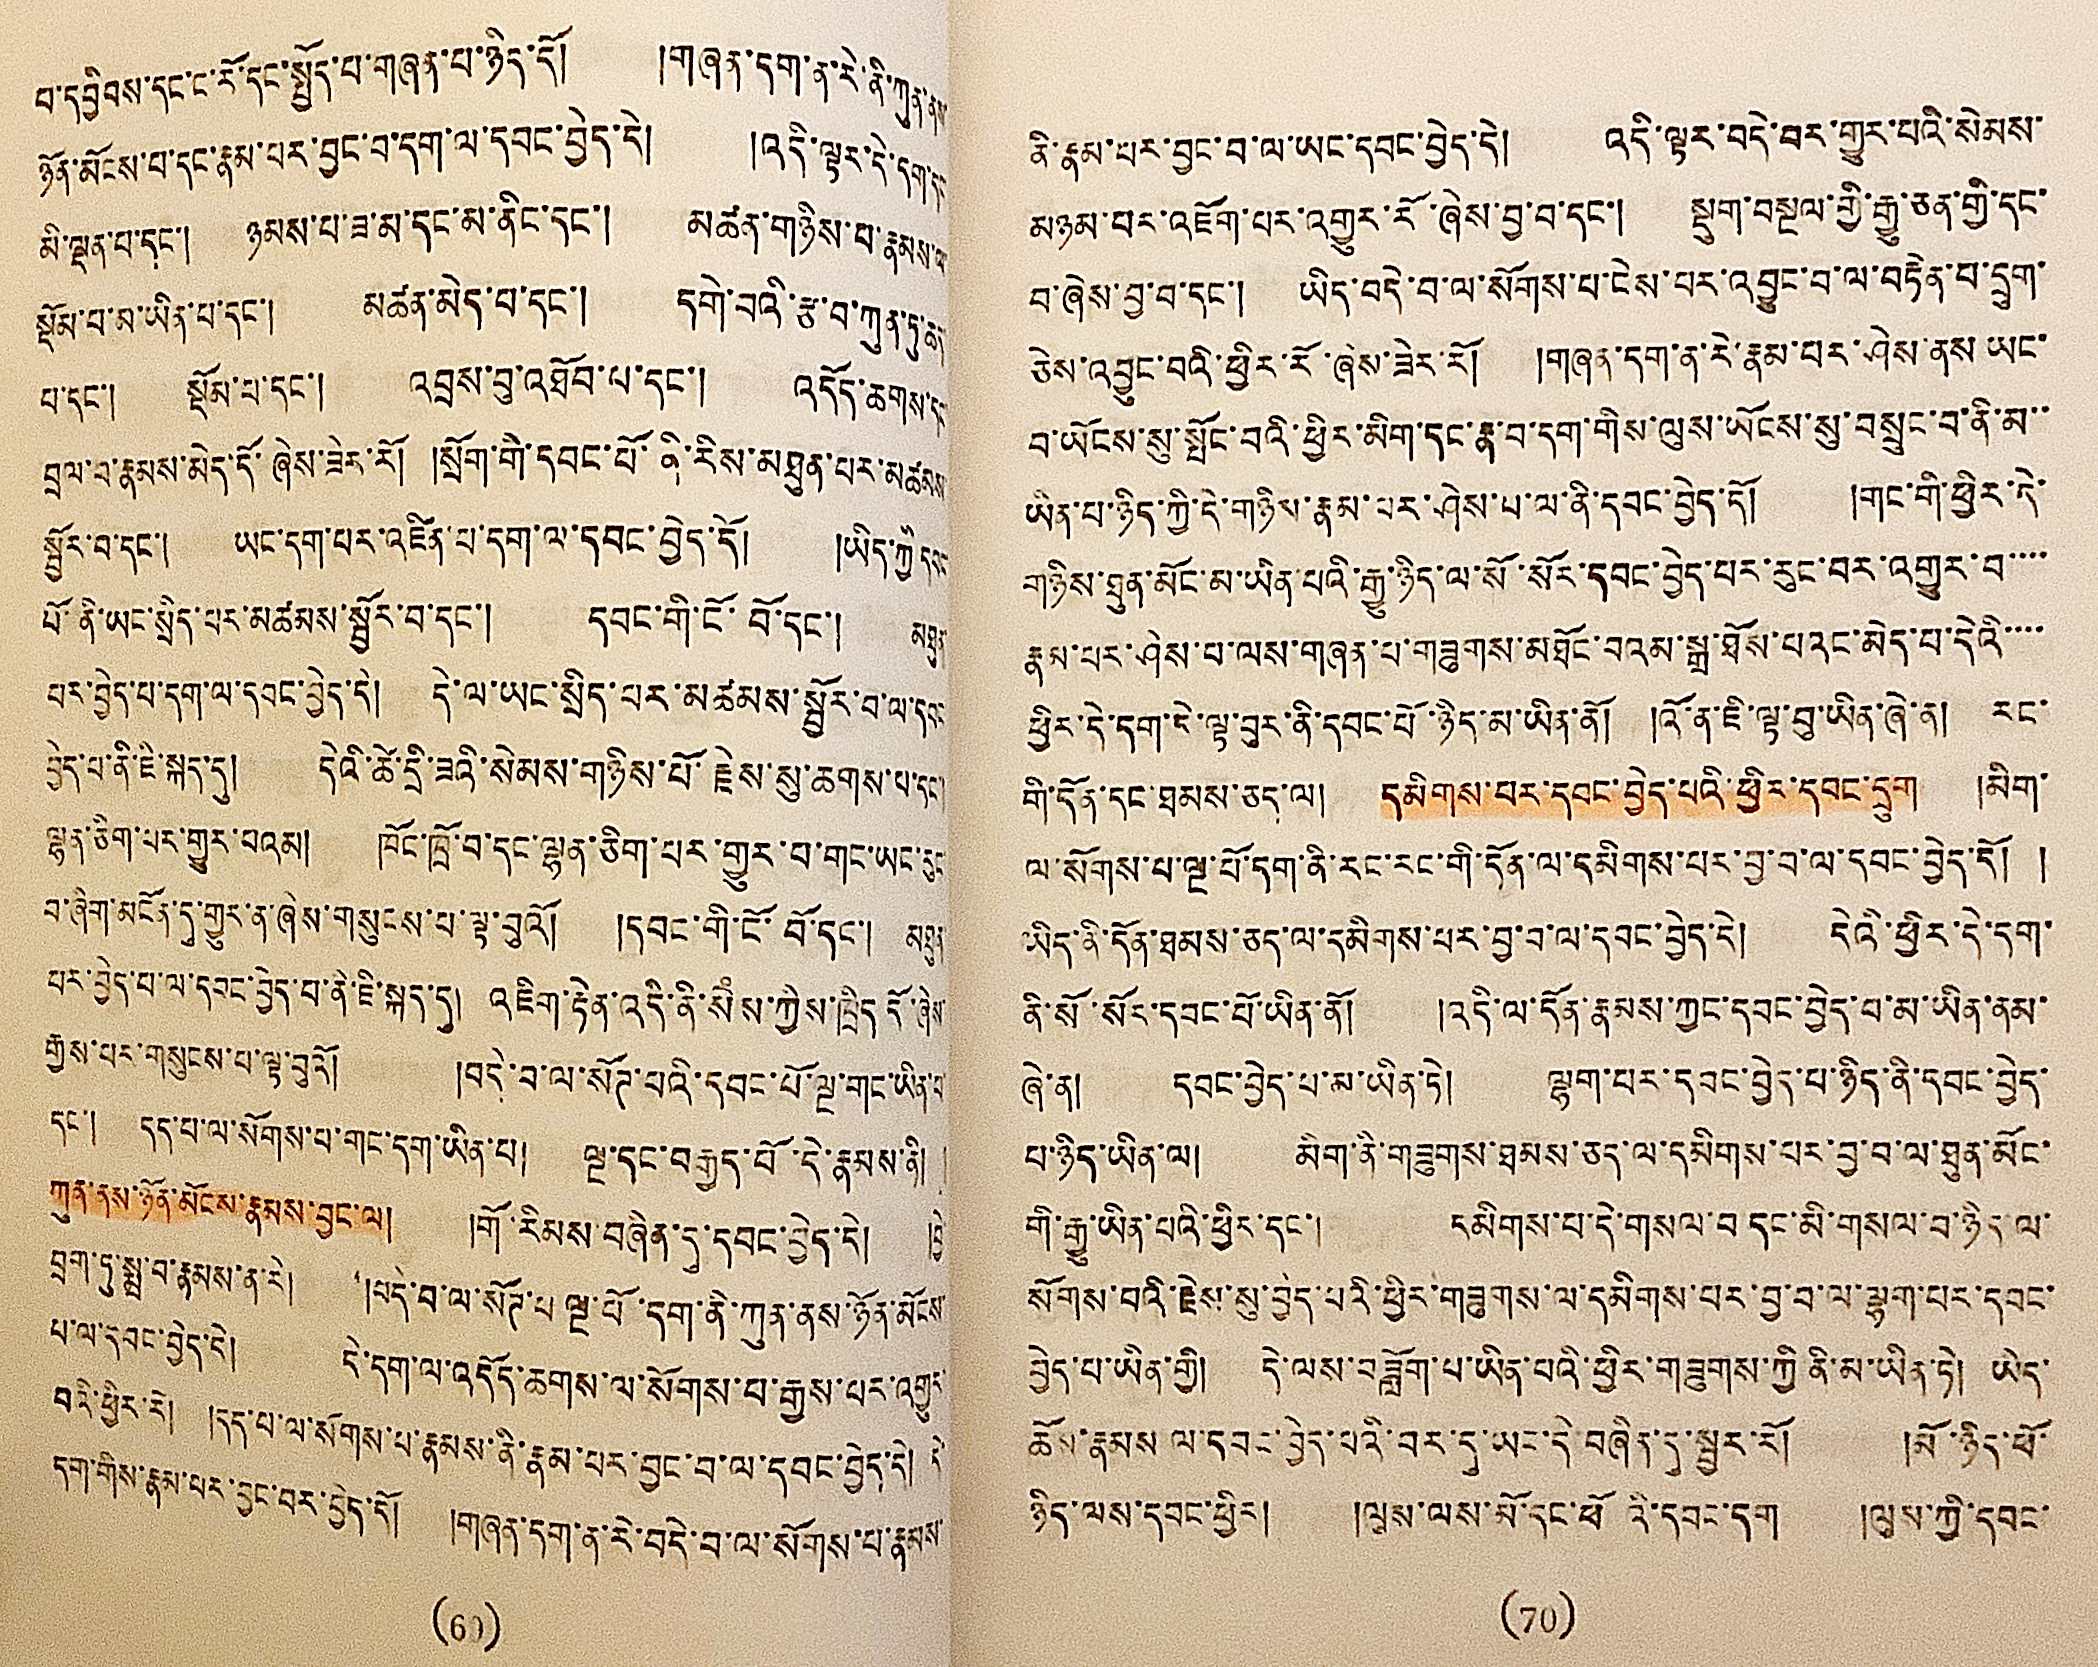 བ་དབྱིབས་དང་ང་རོ་དང་སྤྱོད་པ་གཞན་པ་ཉིད་དོ། །གཞན་དག་ན་རེ་ནི་ཀུན་ནས་
ཉོན་མོངས་པ་དང་རྣམ་པར་བྱང་བ་དག་ལ་དབང་བྱེད་དེ། །འདི་ལྟར་དེ་དག་དང་
མི་ལྡན་པ་དང་། ཉམས་པ་ཟ་མ་དང་མ་ནིང་དང་། མཚན་གཉིས་པ་རྣམས་ལ་
སྡོམ་པ་མ་ཡིན་པ་དང་། མཚན་མེད་པ་དང་། དགེ་བའི་རྩ་བ་ཀུན་ཏུ་ཆད་
པ་དང་། སྡོམ་པ་དང་། འབྲས་བུ་འཐོབ་པ་དང་། འདོད་ཆགས་དང་
བྲལ་བ་རྣམས་མེད་དོ་ཞེས་ཟེར་རོ། །སྲོག་གི་དབང་པོ་ནི་རིས་མཐུན་པར་མཚམས་
སྦྱོར་བ་དང་། ཡང་དག་པར་འཛིན་པ་དག་ལ་དབང་བྱེད་དོ། །ཡིད་ཀྱི་དབང་
པོ་ནི་ཡང་སྲིད་པར་མཚམས་སྦྱོར་བ་དང་། དབང་གི་ངོ་བོ་དང་། མཐུན་
པར་བྱེད་པ་དག་ལ་དབང་བྱེད་དེ། དེ་ལ་ཡང་སྲིད་པར་མཚམས་སྦྱོར་བ་ལ་དབང་
བྱེད་པ་ནི་ཇི་སྐད་དུ། དེའི་ཚེ་དྲི་ཟའི་སེམས་གཉིས་པོ་རྗེས་སུ་ཆགས་པ་དང་།
ལྷན་ཅིག་པར་གྱུར་བའམ། ཁོང་ཁྲོ་བ་དང་ལྷན་ཅིག་པར་གྱུར་བ་གང་ཡང་རུང་
བ་ཞིག་མངོན་དུ་གྱུར་ན་ཞེས་གསུངས་པ་ལྟ་བུའོ། །དབང་གི་ངོ་བོ་དང་། མཐུན་
པར་བྱེད་པ་ལ་དབང་བྱེད་པ་ནི་ཇི་སྐད་དུ། འཇིག་རྟེན་འདི་ནི་སེམས་ཀྱིས་ཁྲིད་དོ་ཞེས་
རྒྱས་པར་གསུངས་པ་ལྟ་བུའོ། །བདེ་བ་ལ་སོཊ་པའི་དབང་པོ་ལྔ་གང་ཡིན་པ་
དང་། དད་པ་ལ་སོགས་པ་གང་དག་ཡིན་པ། ལྔ་དང་བརྒྱད་པོ་དེ་རྣམས་ནི། །
ཀུན་ནས་ཉོན་མོངས་རྣམས་བྱང་ལ། །གོ་རིམས་བཞིན་དུ་དབང་བྱེད་དེ། །བྱེ་
བྲག་ཏུ་སྨྲ་བ་རྣམས་ན་རེ། །བདེ་བ་ལ་སོཊ་པ་ལྔ་པོ་དག་ནི་ཀུན་ནས་ཉོན་མོངས་
པ་ལ་དབང་བྱེད་དེ། དེ་དག་ལ་འདོད་ཆགས་ལ་སོགས་པ་རྒྱས་པར་འགྱུར་
བའི་ཕྱིར་རོ། །དད་པ་ལ་སོགས་པ་རྣམས་ནི་རྣམ་པར་བྱང་བ་ལ་དབང་བྱེད་དེ། དེ་
དག་གིས་རྣམ་པར་བྱང་བར་བྱེད་དོ། །གཞན་དག་ན་རེ་བདེ་བ་ལ་སོགས་པ་རྣམས་
(69)
ནི་རྣམ་པར་བྱང་བ་ལ་ཡང་དབང་བྱེད་དེ། འདི་ལྟར་བདེ་བར་གྱུར་པའི་སེམས་
མཉམ་པར་འཇོག་པར་འགྱུར་རོ་ཞེས་བྱ་བ་དང་། སྡུག་བསྔལ་གྱི་རྒྱུ་ཅན་གྱི་དད་
པ་ཞེས་བྱ་བ་དང་། ཡིད་བདེ་བ་ལ་སོགས་པ་ངེས་པར་འབྱུང་བ་ལ་བརྟེན་པ་དྲུག་
ཅེས་འབྱུང་བའི་ཕྱིར་རོ་ཞེས་ཟེར་རོ། །གཞན་དག་ན་རེ་རྣམ་པར་ཤེས་ནས་ཡང་
བ་ཡོངས་སུ་སྤོང་བའི་ཕྱིར་མིག་དང་རྣ་བ་དག་གིས་ལུས་ཡོངས་སུ་བསྲུང་བ་ནི་མ་
ཡིན་པ་ཉིད་ཀྱི་དེ་གཉིས་རྣམ་པར་ཤེས་པ་ལ་ནི་དབང་བྱེད་དོ། །གང་གི་ཕྱིར་དེ་
གཉིས་ཐུན་མོང་མ་ཡིན་པའི་རྒྱུ་ཉིད་ལ་སོ་སོར་དབང་བྱེད་པར་རུང་བར་འགྱུར་བ་
རྣམ་པར་ཤེས་པ་ལས་གཞན་པ་གཟུགས་མཐོང་བའམ་སྒྲ་ཐོས་པའང་མེད་པ་དེའི་
ཕྱིར་དེ་དག་དེ་ལྟ་བུར་ནི་དབང་པོ་ཉིད་མ་ཡིན་ནོ། །འོ་ན་ཇི་ལྟ་བུ་ཡིན་ཞེ་ན། རང་
གི་དོན་དང་ཐམས་ཅད་ལ། དམིགས་པར་དབང་བྱེད་པའི་ཕྱིར་དབང་དྲུག །མིག་
ལ་སོགས་པ་ལྔ་པོ་དག་ནི་རང་རང་གི་དོན་ལ་དམིགས་པར་བྱ་བ་ལ་དབང་བྱེད་དོ། །
ཡིད་ནི་དོན་ཐམས་ཅད་ལ་དམིགས་པར་བྱ་བ་ལ་དབང་བྱེད་དེ། དེའི་ཕྱིར་དེ་དག་
ནི་སོ་སོར་དབང་པོ་ཡིན་ནོ། །འདི་ལ་དོན་རྣམས་ཀྱང་དབང་བྱེད་པ་མ་ཡིན་ནམ་
ཞེ་ན། དབང་བྱེད་པ་མ་ཡིན་ཏེ། ལྷག་པར་དབང་བྱེད་པ་ཉིད་ནི་དབང་བྱེད་
པ་ཉིད་ཡིན་ལ། མིག་ནི་གཟུགས་ཐམས་ཅད་ལ་དམིགས་པར་བྱ་བ་ལ་ཐུན་མོང་
གི་རྒྱུ་ཡིན་པའི་ཕྱིར་དང་། དམིགས་པ་དེ་གསལ་བ་དང་མི་གསལ་བ་ཉིད་ལ་
སོགས་བའི་རྗེས་སུ་བྱེད་པའི་ཕྱིར་གཟུགས་ལ་དམིགས་པར་བྱ་བ་ལ་ལྷག་པར་དབང་
བྱེད་པ་ཡིན་གྱི། དེ་ལས་བཟློག་པ་ཡིན་པའི་ཕྱིར་གཟུགས་ཀྱི་ནི་མ་ཡིན་ཏེ། ཡིད་
ཆོས་རྣམས་ལ་དབང་བྱེད་པའི་བར་དུ་ཡང་དེ་བཞིན་དུ་སྦྱར་རོ། །མོ་ཉིད་ཕོ་
ཉིད་ལས་དབང་ཕྱིར། །ལུས་ལས་མོ་དང་ཕོ་འི་དབང་དག །ལུས་ཀྱི་དབང་
(70)